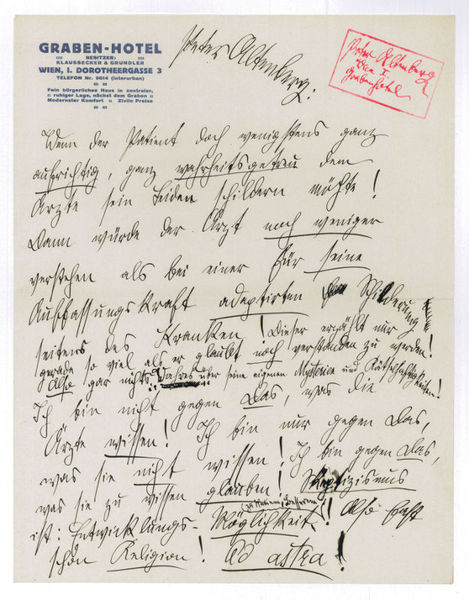 GRABEN-HOTEL
BESITZER:
KLAUSSECKER & GRUNDLER
WIEN, I. DOROTHEERGASSE 3
TELEFON Nr. 9614 (interurban)
Fein bürgerliches Haus in zentraler,
ruhiger Lage, nächst dem Graben
Modernster Komfort Zivile Preise
Peter Altenberg.
Peter Altenberg
Wien I.
Grabenhotel
Wenn der Patient doch wenigstens ganz
aufrichtig, ganz wahrheitsgetreu dem
Arzte sein Leiden schildern möchte!
Dann würde der Arzt noch weniger
verstehen als bei einer für seine
Auffassungskraft adaptirten Schilderung
seitens des Kranken! Dieser erzählt nur
gerade so viel als er glaubt noch verstanden zu werden!
Also gar nichts Wahres über seine eigenen Mysterien und Räthselhaftigkeiten!
Ich bin nicht gegen Das, was die
Ärzte wissen! Ich bin nur gegen Das,
was sie nicht wissen! Ich bin gegen Das,
was sie zu wissen glauben! Skeptizismus
ist: Entwicklungs-Möglichkeit! Also fast
schon Religion! Ad astra!